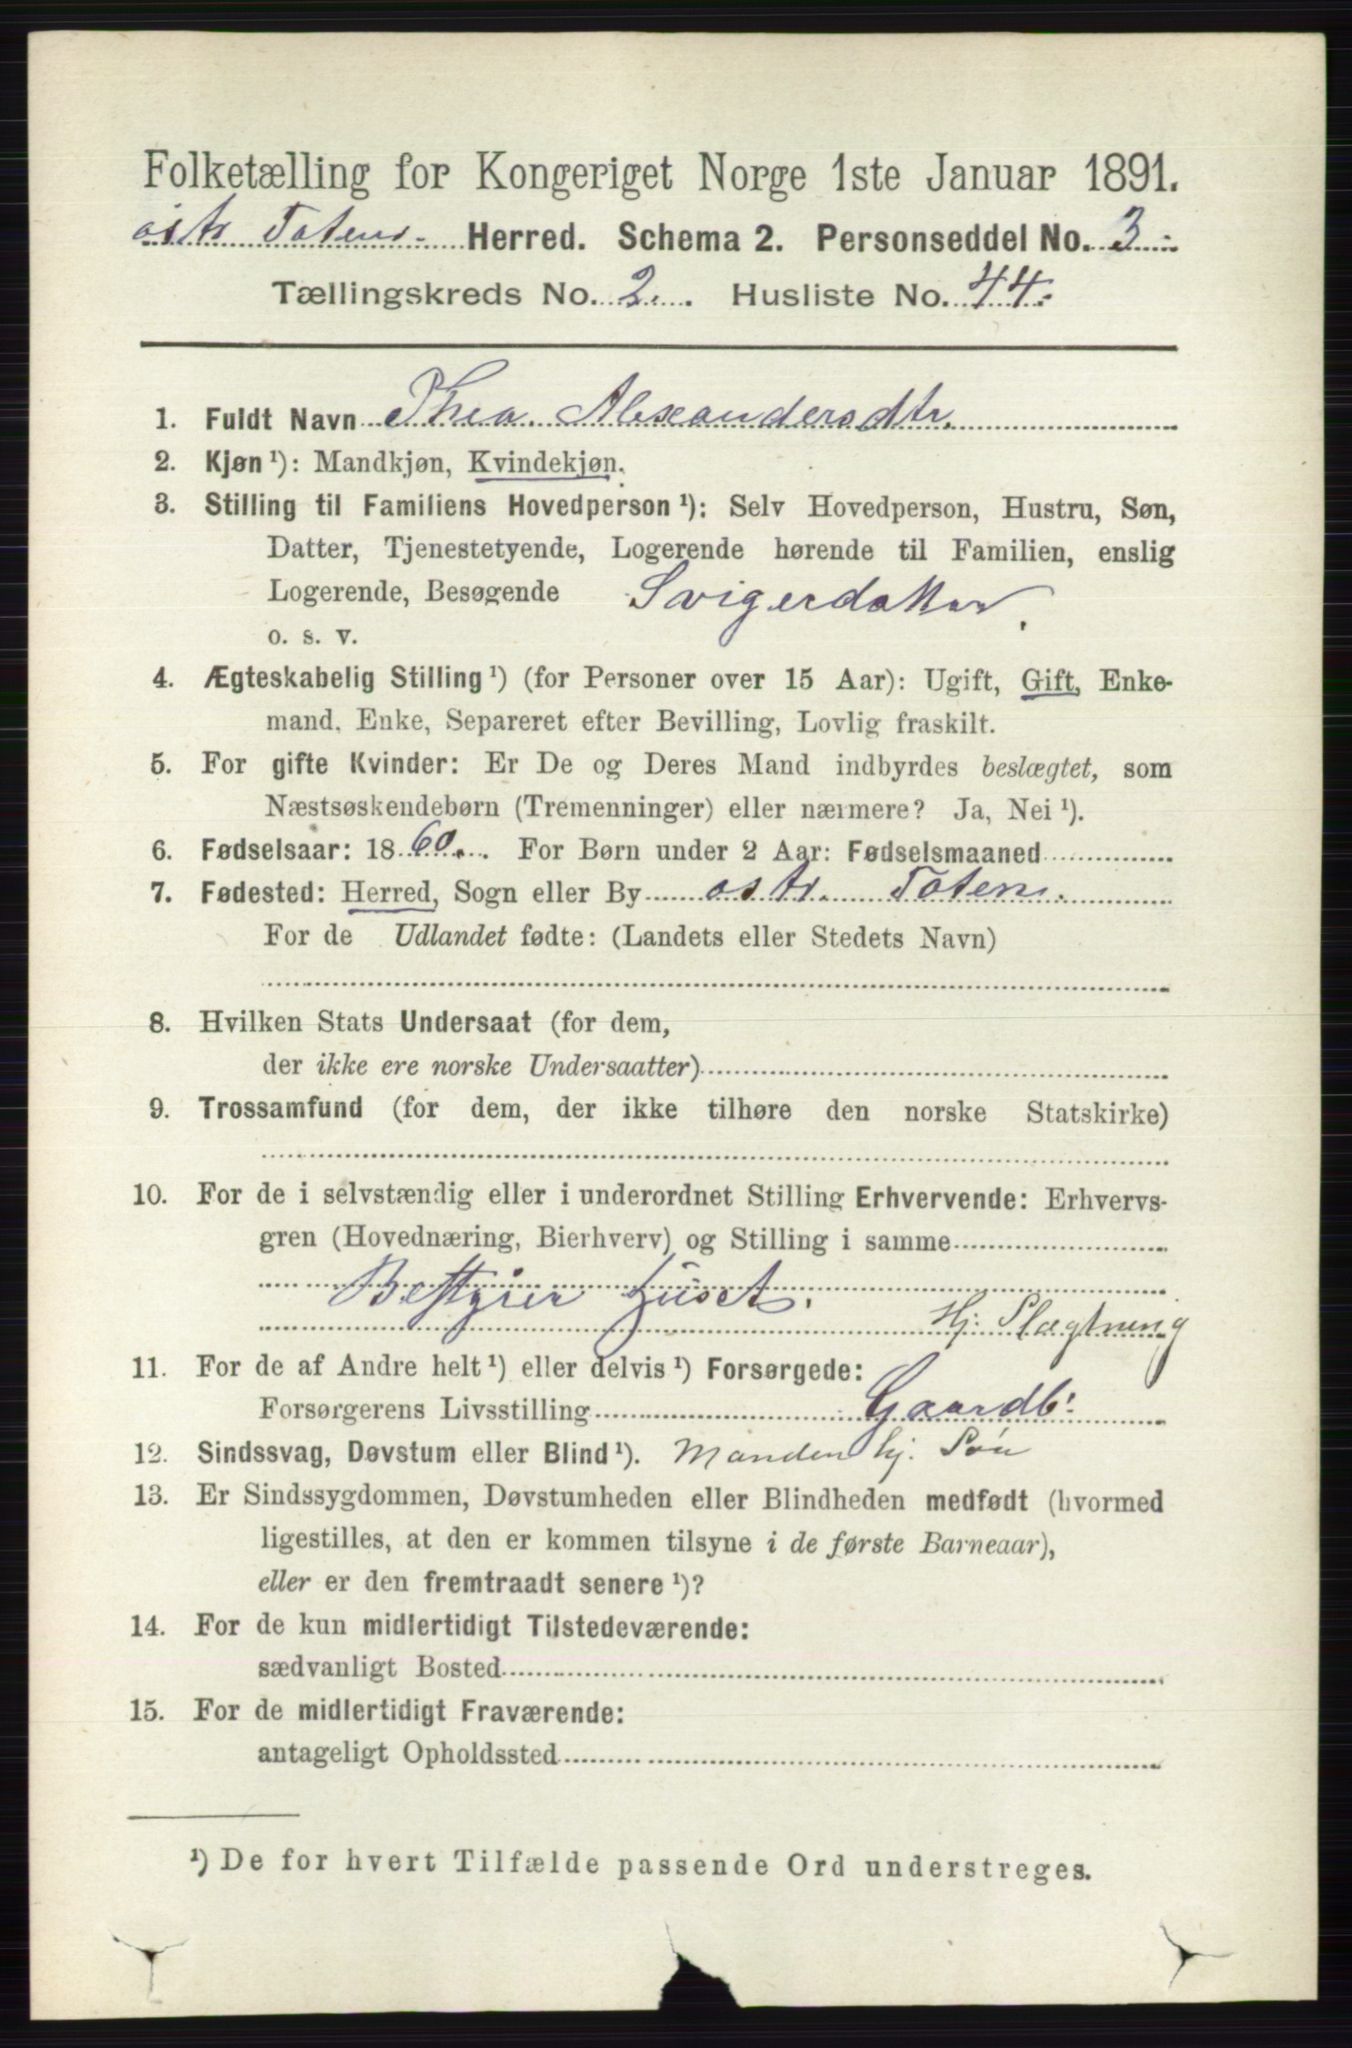 Folketælling for Kongeriget Norge 1ste Januar 1891.
østr Totens Herred. Schema 2. Personseddel No. 3
Tællingskreds No. 2. Husliste No. 44.
1. Fuldt Navn Thea Alexandersdtr.
2. Kjøn ¹): Mandkjøn, Kvindekjøn.
3. Stilling til Familiens Hovedperson ¹): Selv Hovedperson, Hustru, Søn,
Datter, Tjenestetyende, Logerende hørende til Familien, enslig
Logerende, Besøgende Svigerdatter.
o. s. v.
4. Ægteskabelig Stilling ¹) (for Personer over 15 Aar): Ugift, Gift, Enke-
mand, Enke, Separeret efter Bevilling, Lovlig fraskilt.
5. For gifte Kvinder: Er De og Deres Mand indbyrdes beslægtet, som
Næstsøskendebørn (Tremenninger) eller nærmere? Ja, Nei ¹).
6. Fødselsaar: 1860. For Børn under 2 Aar: Fødselsmaaned
7. Fødested: Herred, Sogn eller By østr. Toten.
For de Udlandet fødte: (Landets eller Stedets Navn)
8. Hvilken Stats Undersaat (for dem,
der ikke ere norske Undersaatter)
9. Trossamfund (for dem, der ikke tilhøre den norske Statskirke)
10. For de i selvstændig eller i underordnet Stilling Erhvervende: Erhvervs-
gren (Hovednæring, Bierhverv) og Stilling i samme
Bestyrer Huset.
Hj. Slægtning
11. For de af Andre helt ¹) eller delvis ¹) Forsørgede:
Forsørgerens Livsstilling Gaardb:
12. Sindssvag, Døvstum eller Blind ¹). Manden hj. Søn
13. Er Sindssygdommen, Døvstumheden eller Blindheden medfødt (hvormed
ligestilles, at den er kommen tilsyne i de første Barneaar),
eller er den fremtraadt senere ¹)?
14. For de kun midlertidigt Tilstedeværende:
sædvanligt Bosted
15. For de midlertidigt Fraværende:
antageligt Opholdssted
¹) De for hvert Tilfælde passende Ord understreges.